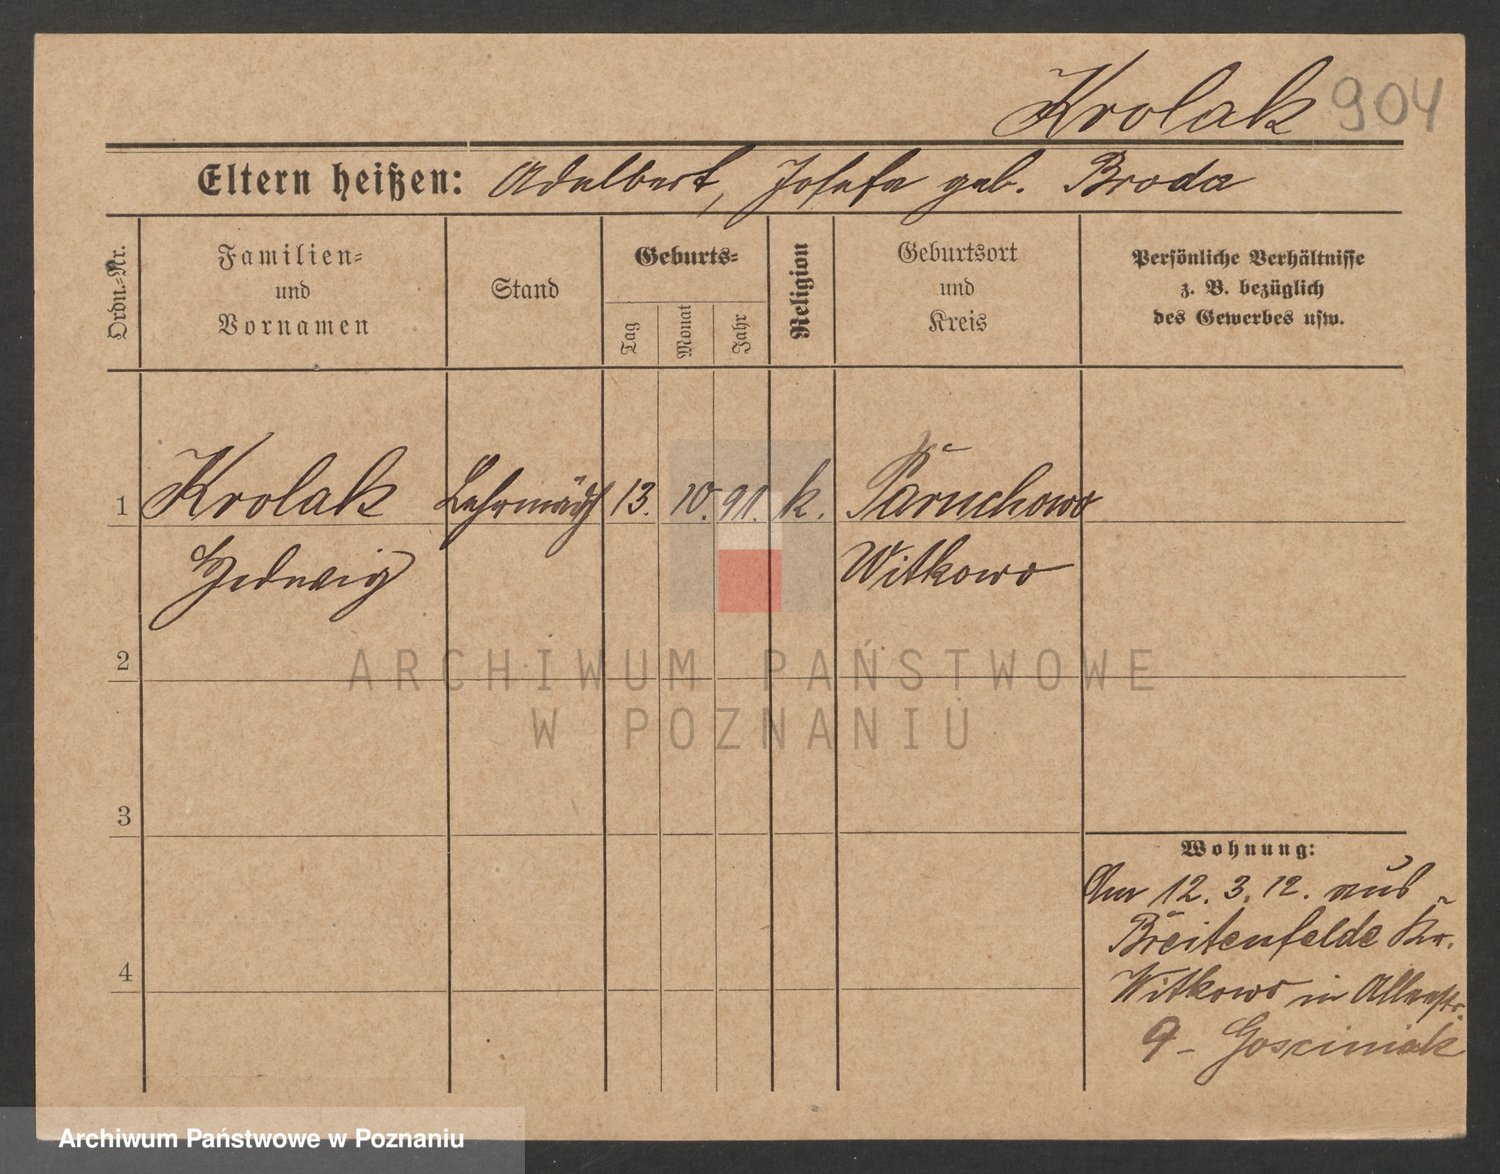 Krolak 904
Eltern heißen: Adalbert, Josefa geb. Broda
Ordn.-Nr.
Familien-
und
Vornamen
Stand
Geburts-
Tag
Monat
Jahr
Religion
Geburtsort
und
Kreis
Persönliche Verhältnisse
z. B. bezüglich
des Gewerbes usw.
1 Krolak Lehrmädch 13. 10. 91. k. Paruchowo
Hedwig Witkowo
2
3
4
Wohnung:
Am 12. 3. 12. aus
Breitenfelde Kr.
Witkowo in Alleestr.
9 - Gosciniak
ARCHIWUM PAŃSTWOWE
W POZNANIU
Archiwum Państwowe w Poznaniu